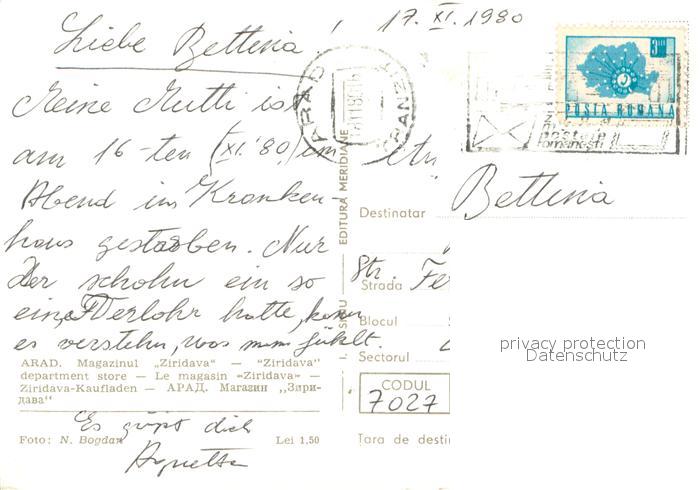 17. XI. 1980
Liebe Bettina!
Meine Mutti ist
am 16-ten (XI.'80) im
Abend im Kranken-
haus gestorben. Nur
der schohn ein so
eine Verlohr hatte, kann
es verstehn, was man fühlt.
Es grüßt dich
ARAD. Magazinul „Ziridava" — "Ziridava"
department store — Le magasin «Ziridava» —
Ziridava-Kaufladen — АРАД. Магазин „Зири-
дава"
Foto: N. Bogdan Lei 1,50
EDITURA MERIDIANE
ARAD
TRANZIT
3 LEI
POSTA ROMANA
An
Bettina
Destinatar
Str.
Strada
Blocul
Sectorul
CODUL
7027
Tara de desti
privacy protection
Datenschutz